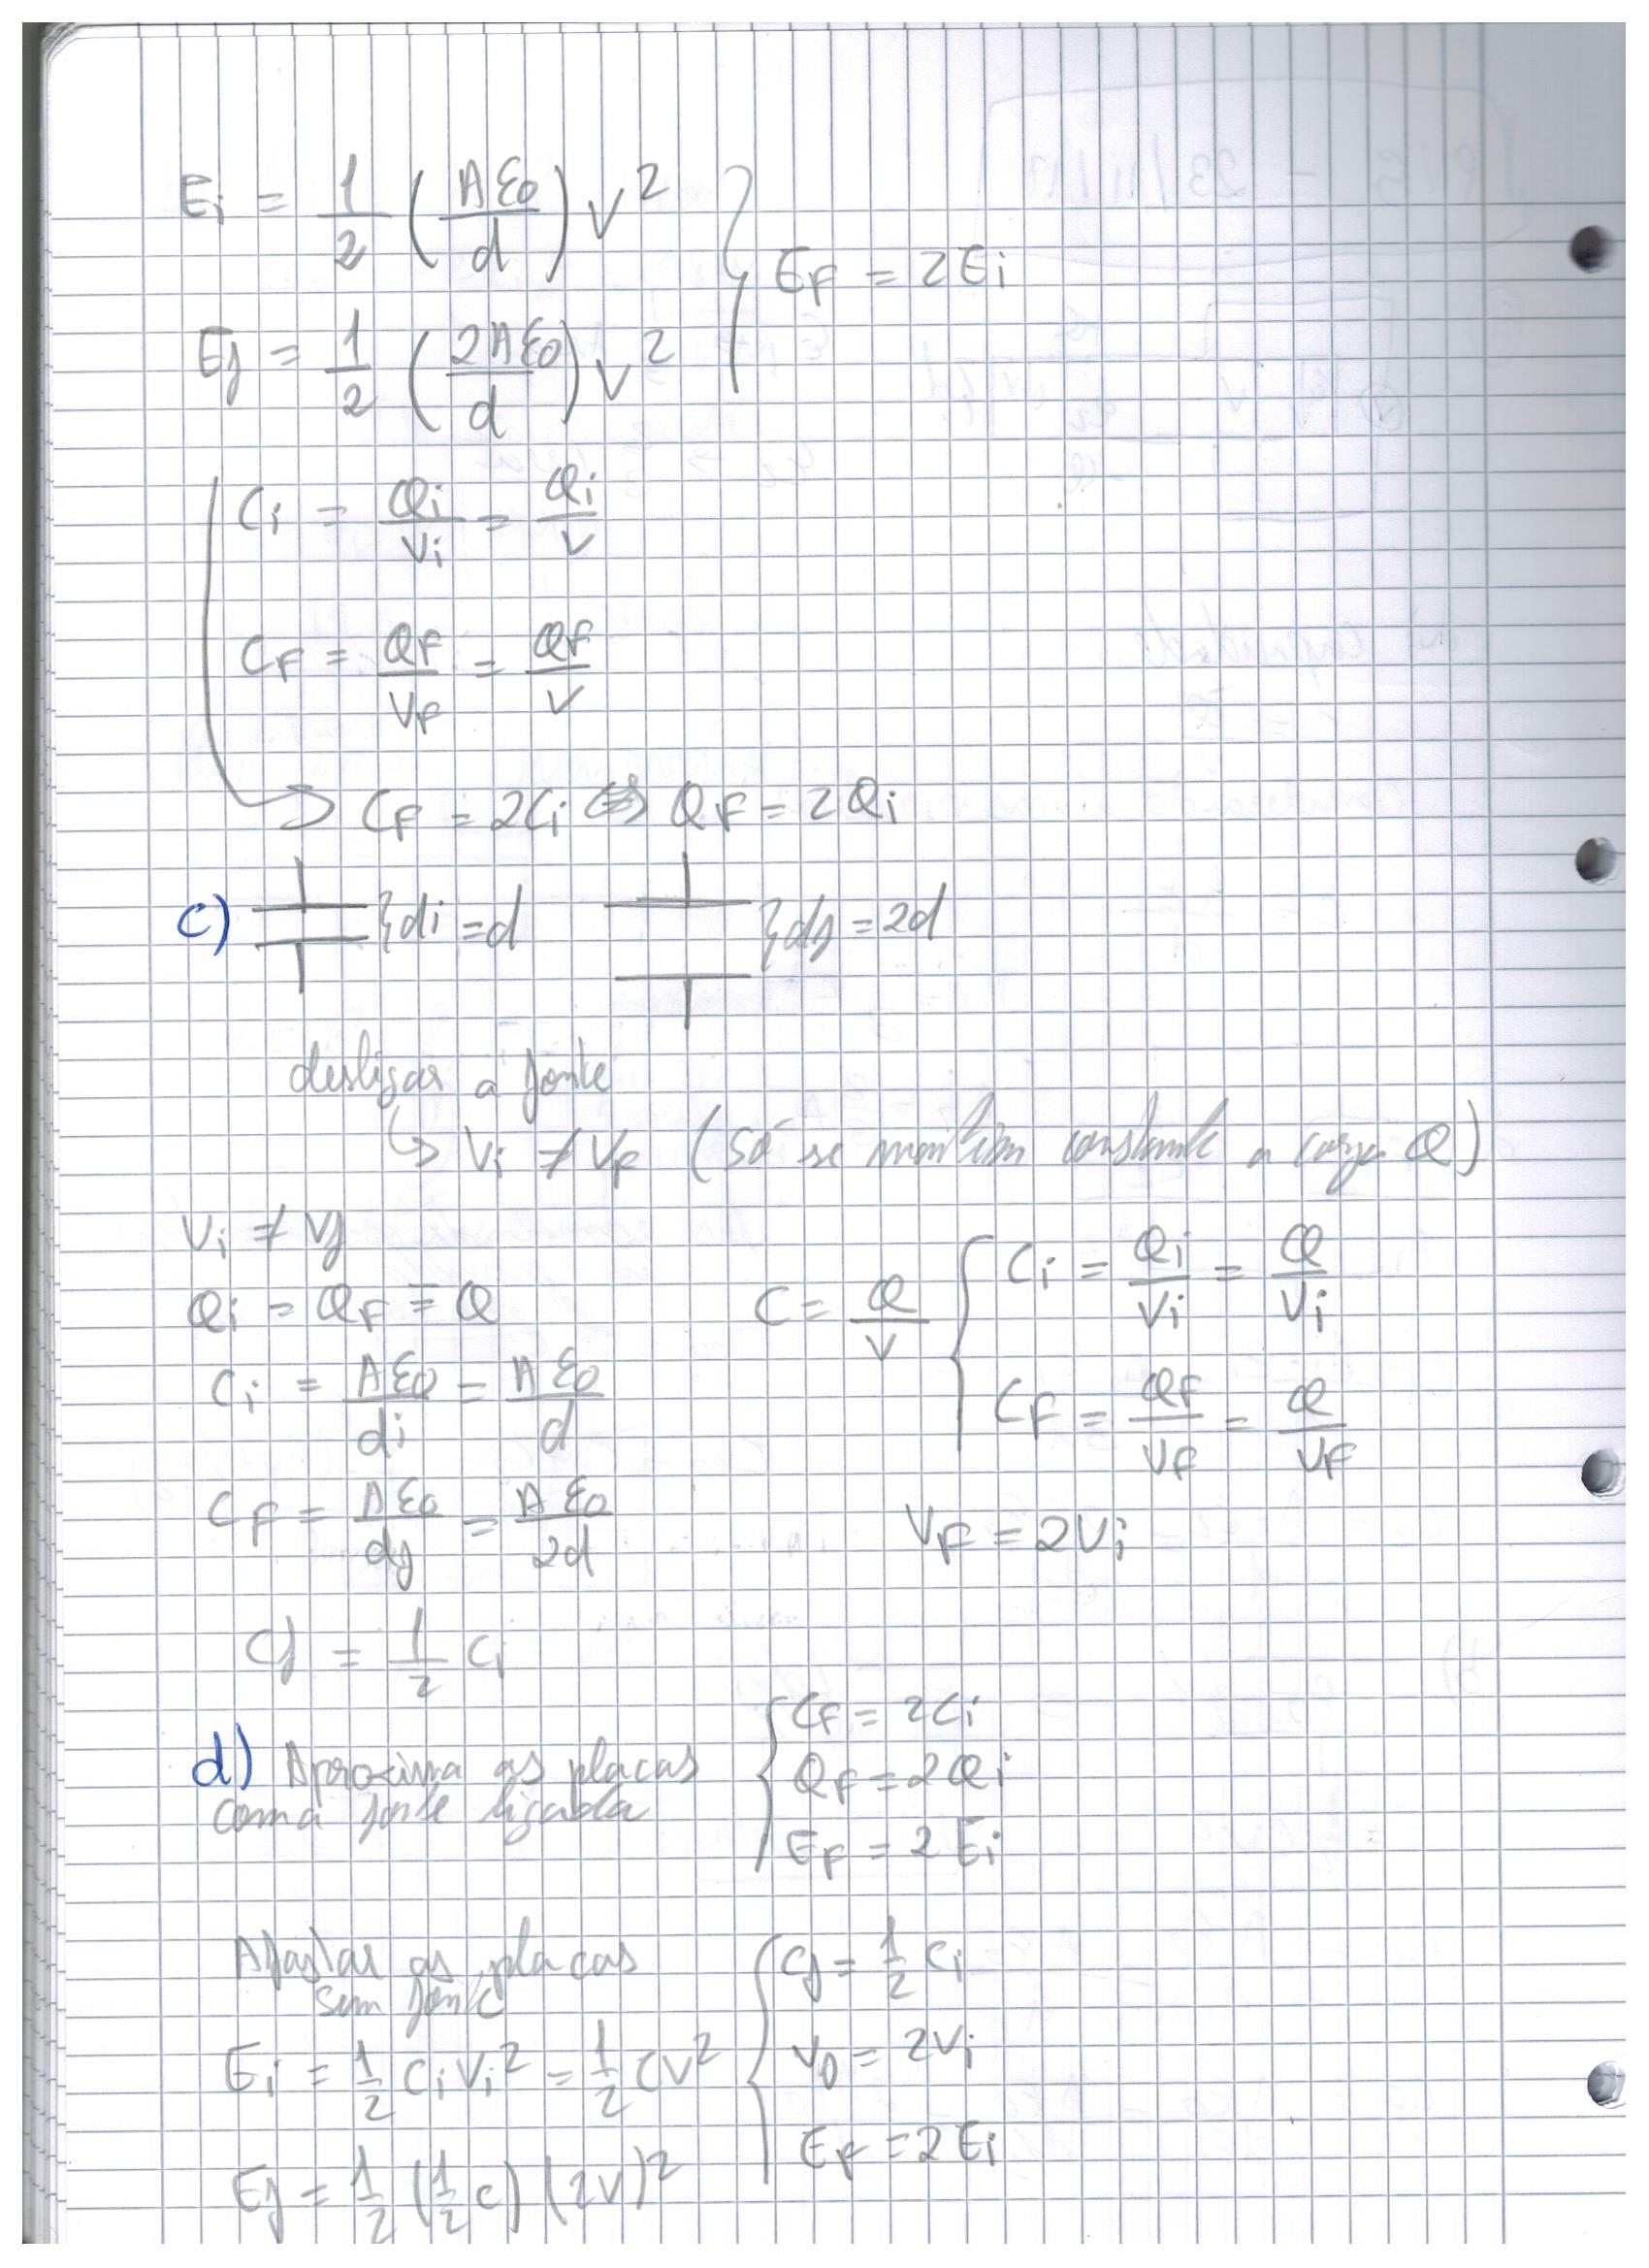 Ei = 1/2 (Aε0/d) V²
Ef = 1/2 (2Aε0/d) V²
EF = 2Ei
Ci = Qi/Vi = Qi/V
CF = QF/VF = QF/V
→ CF = 2Ci ⇔ QF = 2Qi
c) }di = d }df = 2d
desligar a fonte
↳ Vi ≠ VF (só se mantém constante a carga Q)
Vi ≠ Vf
Qi = QF ≡ Q
Ci = Aε0/di = Aε0/d
CF = Aε0/df = Aε0/2d
Cf = 1/2 Ci
C = Q/V { Ci = Qi/Vi = Q/Vi
CF = QF/VF = Q/VF
VF = 2Vi
d) Aproxima as placas
com a fonte ligada
{ CF = 2Ci
QF = 2Qi
EF = 2Ei
Afastar as placas
sem fonte
Ei = 1/2 Ci Vi² = 1/2 CV²
Ef = 1/2 (1/2 C) (2V)²
{ Cf = 1/2 Ci
= 2Vi
EF = 2Ei